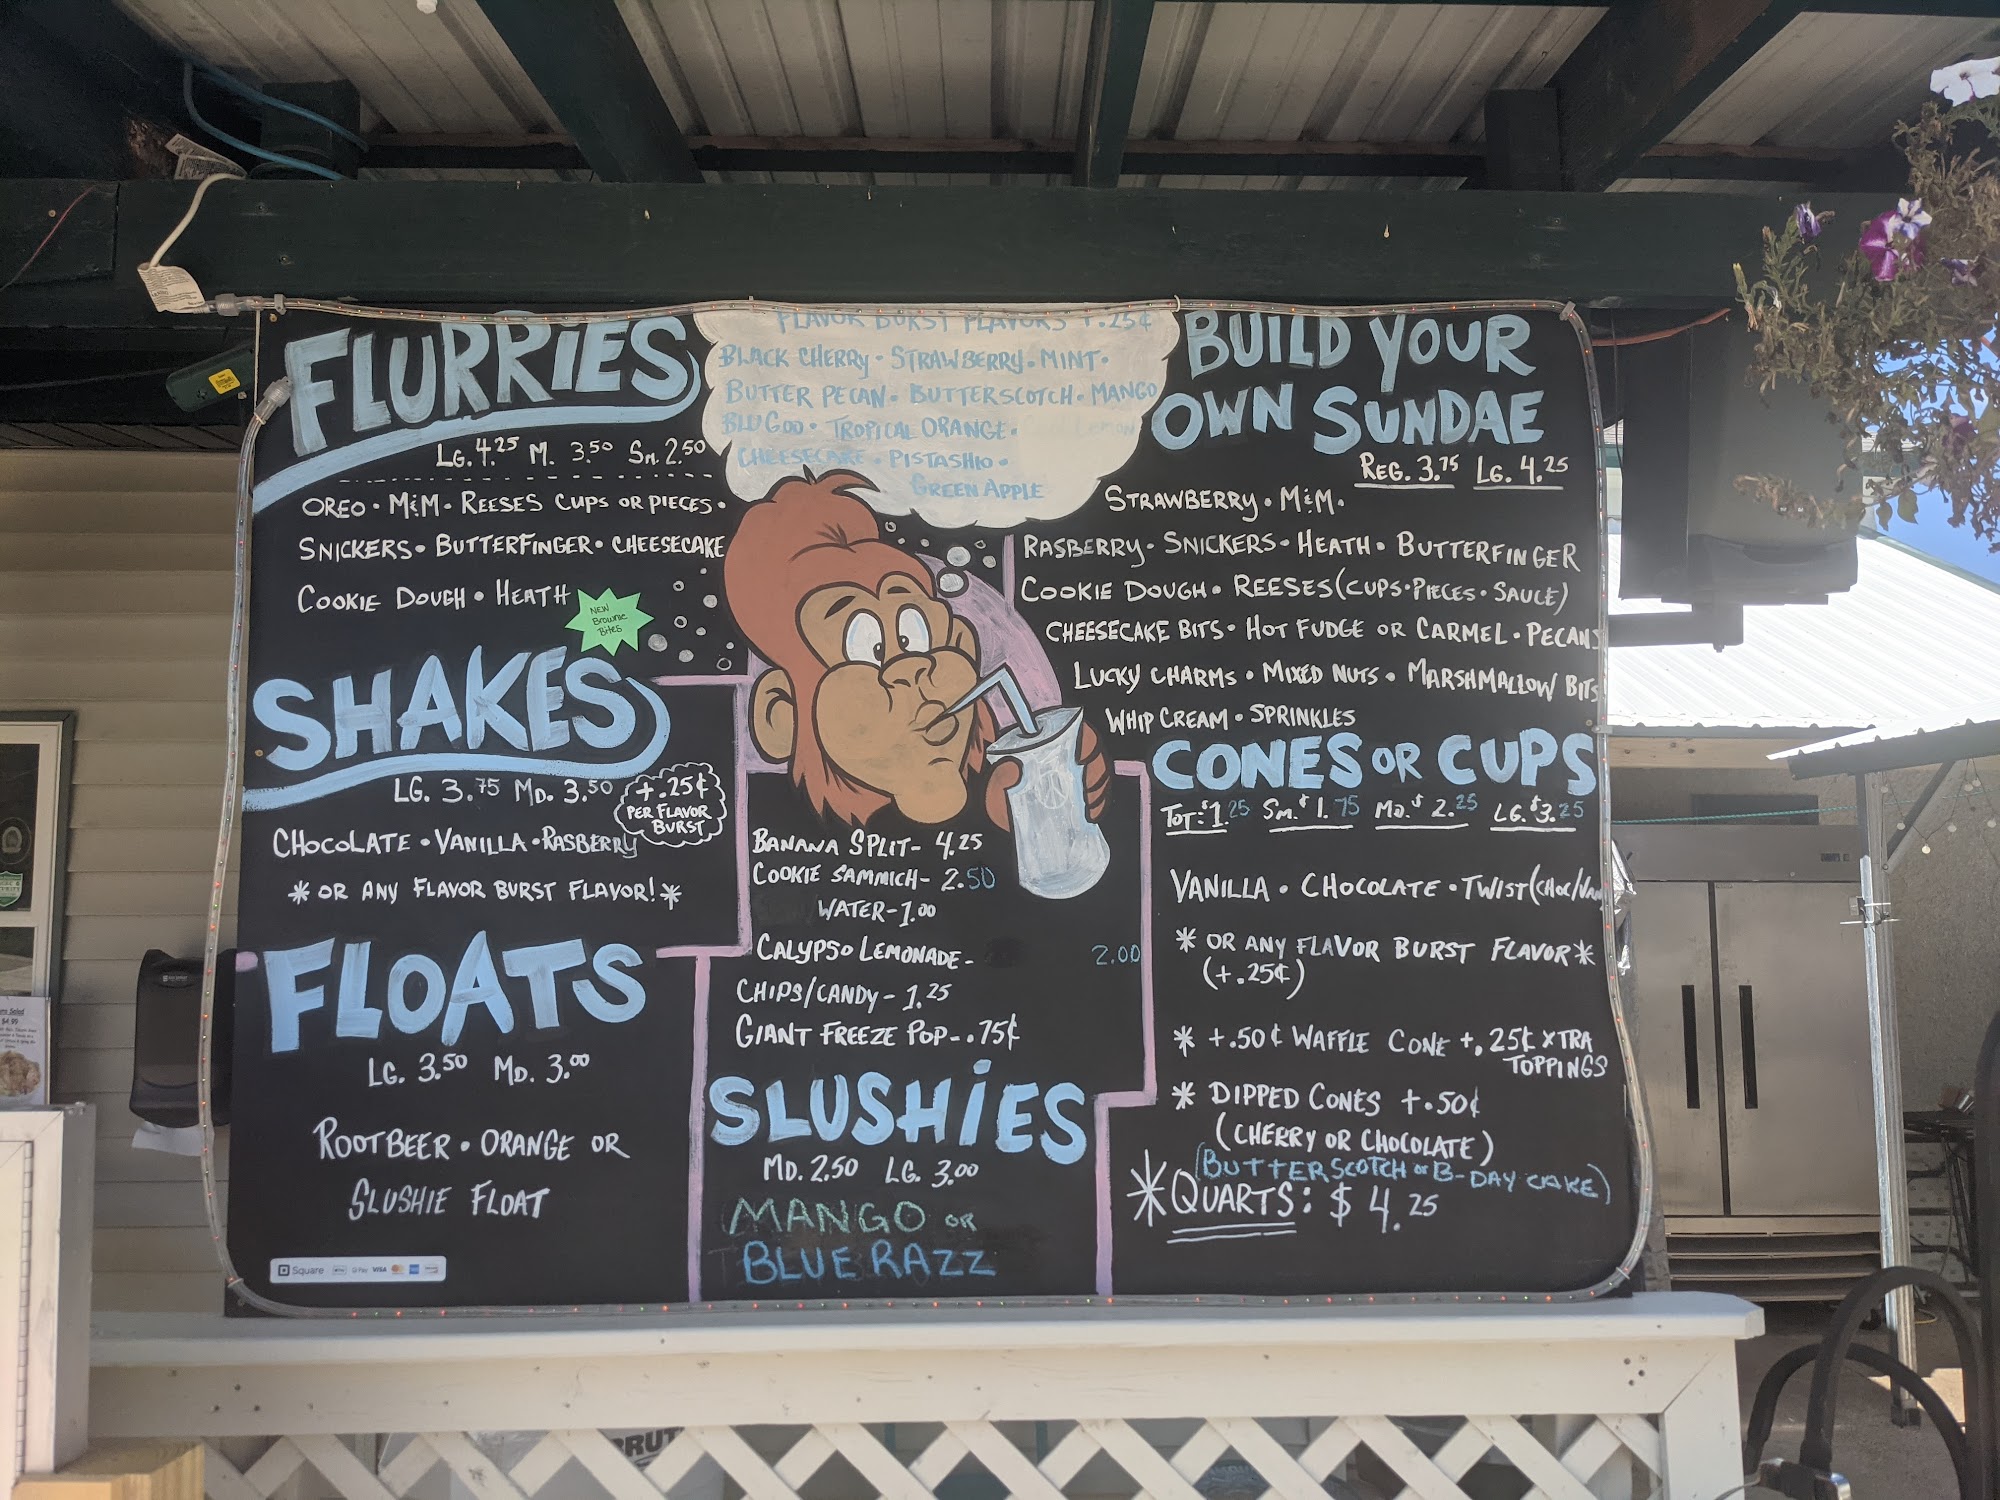 FLURRiES
LG. 4.25 M. 3.50 SM. 2.50
OREO • M&M • REESES CUPS OR PIECES •
SNICKERS • BUTTERFINGER • CHEESECAKE
COOKIE DOUGH • HEATH
NEW
Brownie
Bites
SHAKES
LG. 3.75 MD. 3.50
+.25¢
PER FLAVOR
BURST
CHOCOLATE • VANILLA • RASBERRY
* OR ANY FLAVOR BURST FLAVOR! *
FLOATS
LG. 3.50 MD. 3.00
ROOTBEER • ORANGE OR
SLUSHIE FLOAT
Square G Pay VISA
FLAVOR BURST FLAVORS +.25¢
BLACK CHERRY • STRAWBERRY • MINT •
BUTTER PECAN • BUTTERSCOTCH • MANGO
BLU GOO • TROPICAL ORANGE • Lemon
CHEESECAKE • PISTASHIO •
GREEN APPLE
BANANA SPLIT- 4.25
COOKIE SAMMICH- 2.50
WATER-1.00
CALYPSO LEMONADE- 2.00
CHIPS/CANDY- 1.25
GIANT FREEZE POP-.75¢
SLUSHiES
MD. 2.50 LG. 3.00
MANGO OR
BLUE RAZZ
BUILD YOUR
OWN SUNDAE
REG. 3.75 LG. 4.25
STRAWBERRY • M&M •
RASBERRY • SNICKERS • HEATH • BUTTERFINGER
COOKIE DOUGH • REESES (CUPS • PIECES • SAUCE)
CHEESECAKE BITS • HOT FUDGE OR CARMEL • PECANS
LUCKY CHARMS • MIXED NUTS • MARSHMALLOW BITS
WHIP CREAM • SPRINKLES
CONES OR CUPS
TOT: $1.25 SM. $1.75 MD. $2.25 LG. $3.25
VANILLA • CHOCOLATE • TWIST (CHOC/VAN
* OR ANY FLAVOR BURST FLAVOR *
(+.25¢)
* +.50¢ WAFFLE CONE +.25¢ XTRA
TOPPINGS
* DIPPED CONES +.50¢
(CHERRY OR CHOCOLATE)
(BUTTERSCOTCH OR B-DAY CAKE)
*QUARTS: $4.25
BRUT